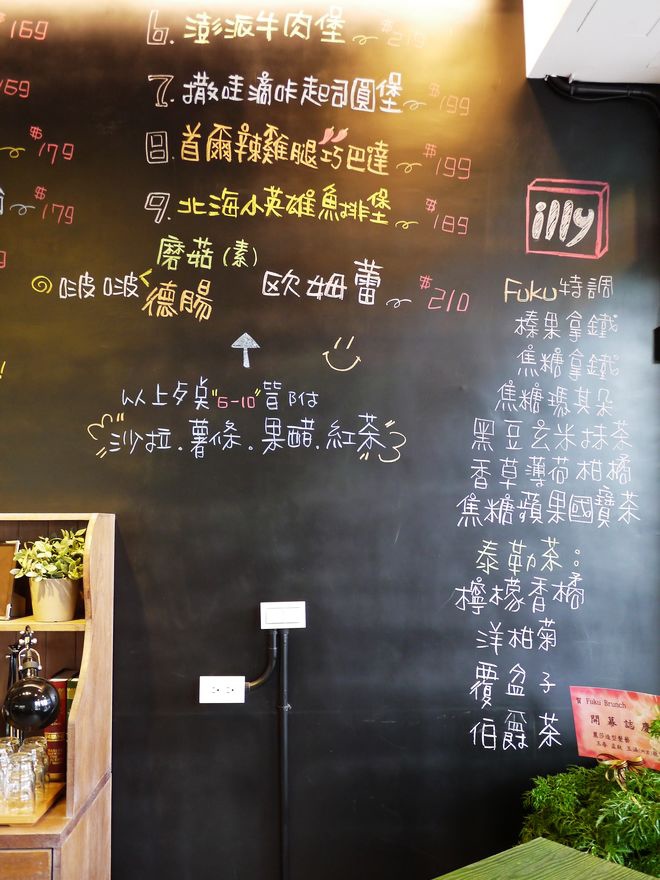 $169
6. 澎派牛肉堡 $219
$169
7. 撒哇滴咔起司圓堡 $199
$179
8. 首爾辣雞腿巧巴達 $199
$179
9. 北海小英雄魚排堡 $189
磨菇(素)
啵啵<德腸 歐姆蕾 $210
以上歺桌"6-10"皆附
沙拉.薯條.果醋.紅茶
illy
Fuku特調
榛果拿鐵
焦糖拿鐵
焦糖瑪其朵
黑豆玄米抹茶
香草薄荷柑橘
焦糖蘋果國寶茶
泰勒茶:
檸檬香橘
洋柑菊
覆盆子
伯爵茶
賀 Fuku Brunch
開幕誌慶